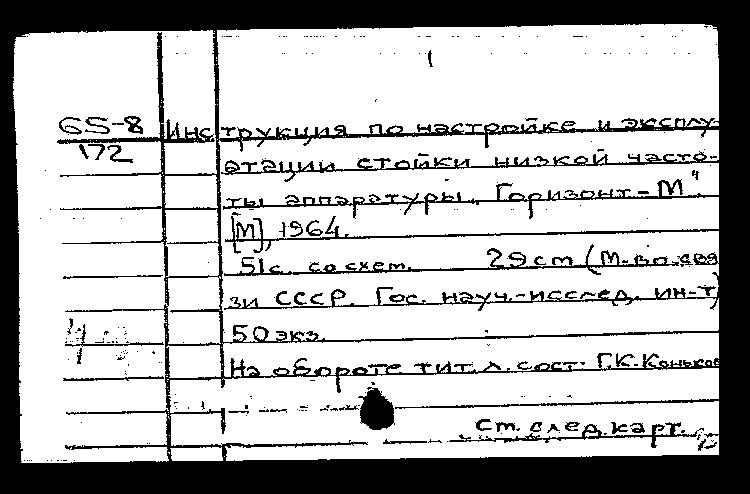 1
65-8 Инструкция по настройке и эксплу-
172
атации стойки низкой часто-
ты аппаратуры „Горизонт-М".
[М], 1964.
51с. со схем. 29cm (М-во свя
зи СССР. Гос. науч.-исслед. ин-т)
50 экз.
На обороте тит. л. сост. Г.К. Коньков
ст. след. карт.